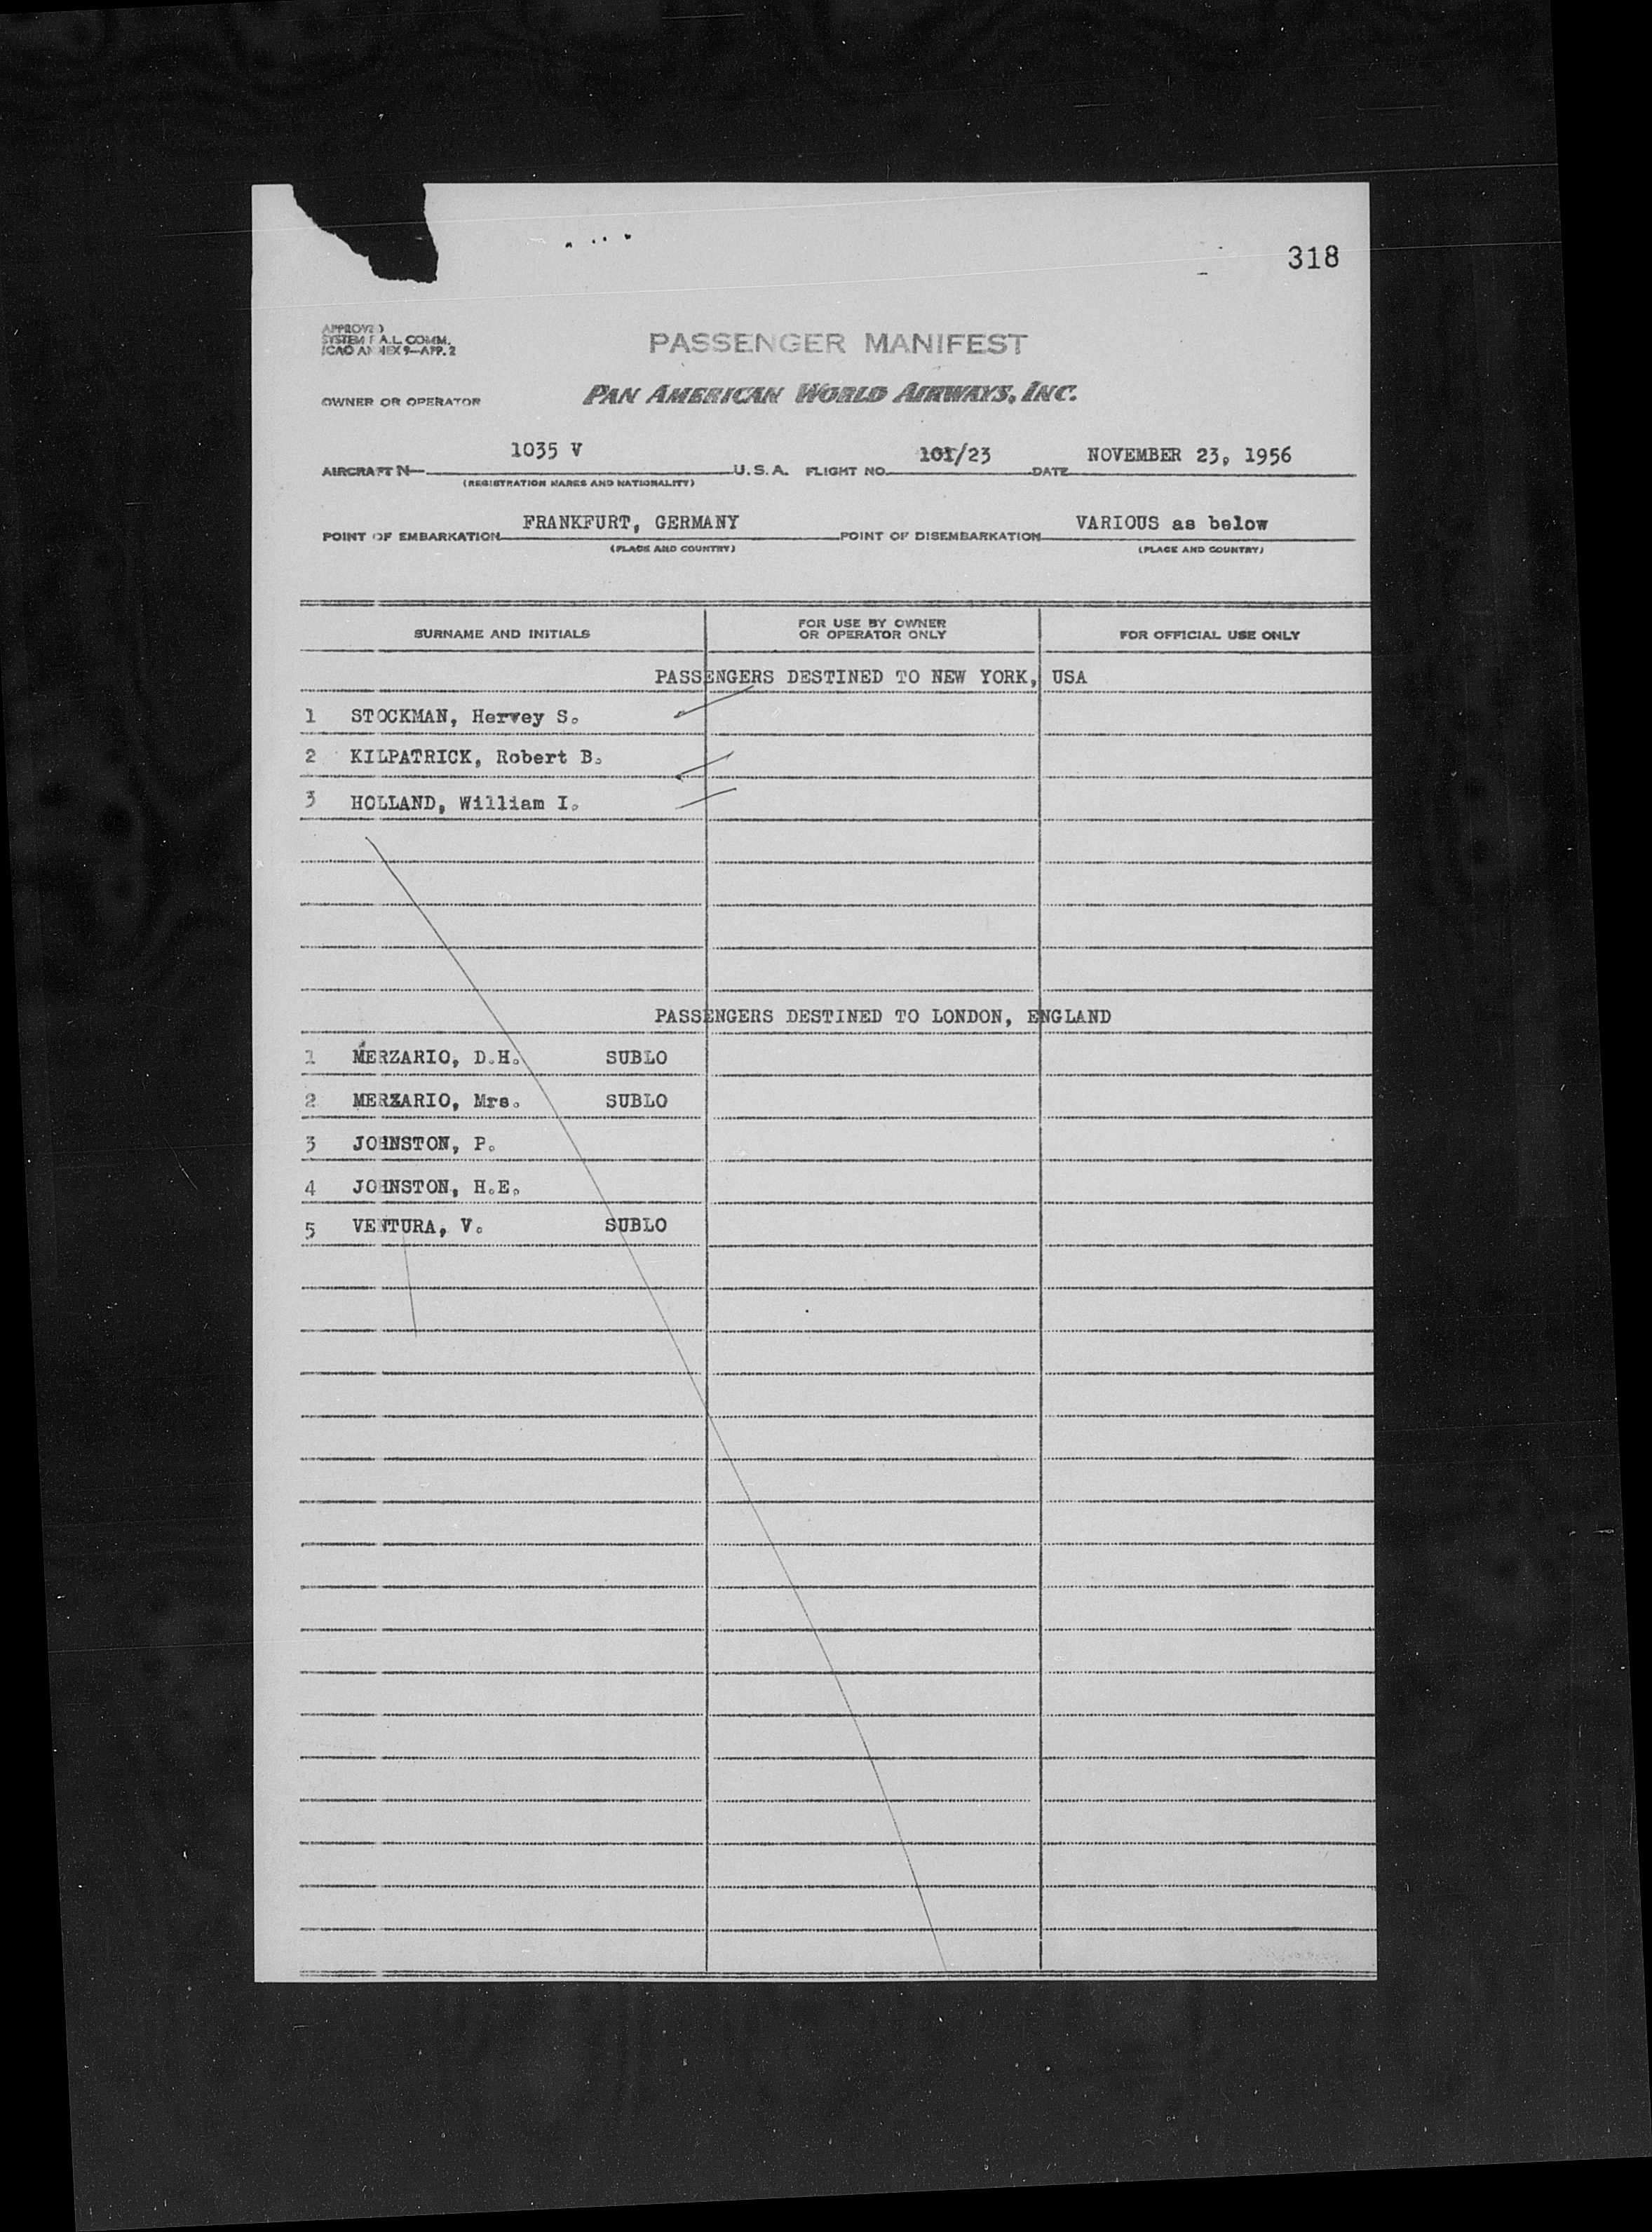 318
APPROVED
SYSTEM F.A.L. COMM.
ICAO ANNEX 9—APP. 2
PASSENGER MANIFEST
OWNER OR OPERATOR PAN AMERICAN WORLD AIRWAYS, INC.
AIRCRAFT N— 1035 V U.S.A. FLIGHT NO. 101/23 DATE NOVEMBER 23, 1956
(REGISTRATION MARKS AND NATIONALITY)
POINT OF EMBARKATION FRANKFURT, GERMANY POINT OF DISEMBARKATION VARIOUS as below
(PLACE AND COUNTRY) (PLACE AND COUNTRY)
SURNAME AND INITIALS FOR USE BY OWNER OR OPERATOR ONLY FOR OFFICIAL USE ONLY
PASSENGERS DESTINED TO NEW YORK, USA
1 STOCKMAN, Hervey S.
2 KILPATRICK, Robert B.
3 HOLLAND, William I.
PASSENGERS DESTINED TO LONDON, ENGLAND
1 MERZARIO, D.H. SUBLO
2 MERZARIO, Mrs. SUBLO
3 JOHNSTON, P.
4 JOHNSTON, H.E.
5 VENTURA, V. SUBLO